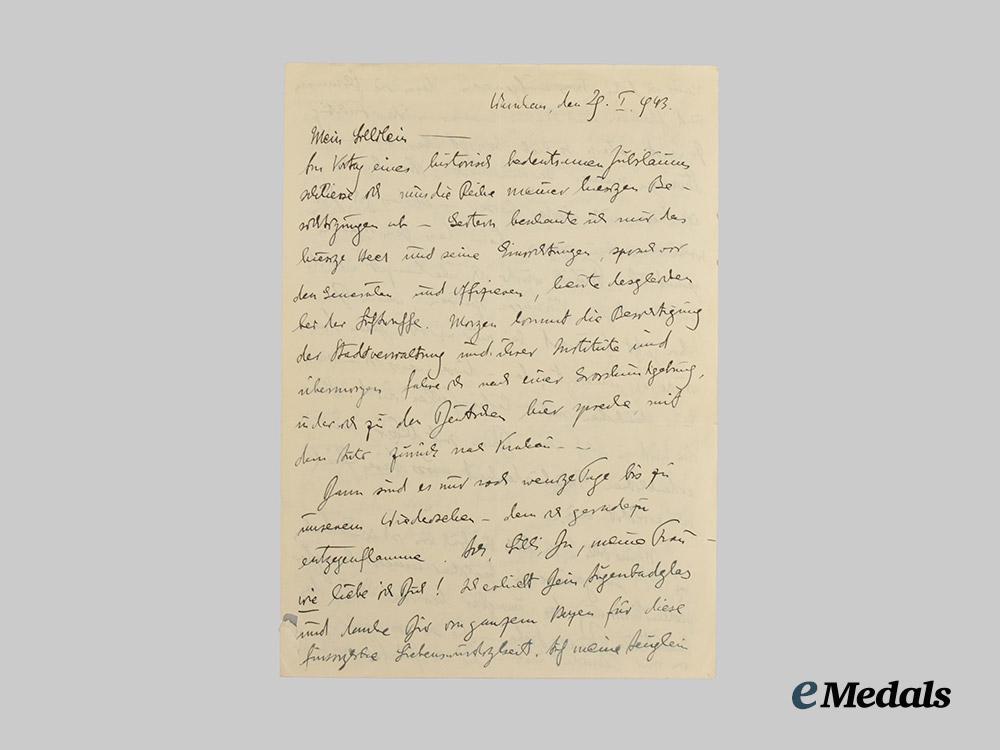 Warschau, den 29. I. 1943.
Mein Lillilein
Am Vortag eines historisch bedeutsamen Jubiläums
schliesse ich nun die Reihe meiner hiesigen Be-
sichtigungen ab – Gestern beschaute ich mir das
hiesige Heer und seine Einrichtungen, sprach vor
den Generälen und Offizieren, heute desgleichen
bei der Luftwaffe. Morgen kommt die Besichtigung
der Stadtverwaltung und ihrer Institute und
übermorgen fahre ich nach einer Grosskundgebung,
in der ich zu den Deutschen hier spreche mit
dem Auto zurück nach Krakau – –
Dann sind es nur noch wenige Tage bis zu
unserem Wiedersehen – dem ich geradezu
entgegenflamme. Ach, Lilli, Du, meine Frau –
wie liebe ich Dich! Ich erhielt Dein Augenbadglas
und danke Dir von ganzem Herzen für diese
fürsorgliche Liebenswürdigkeit. Auf meine Äuglein
eMedals